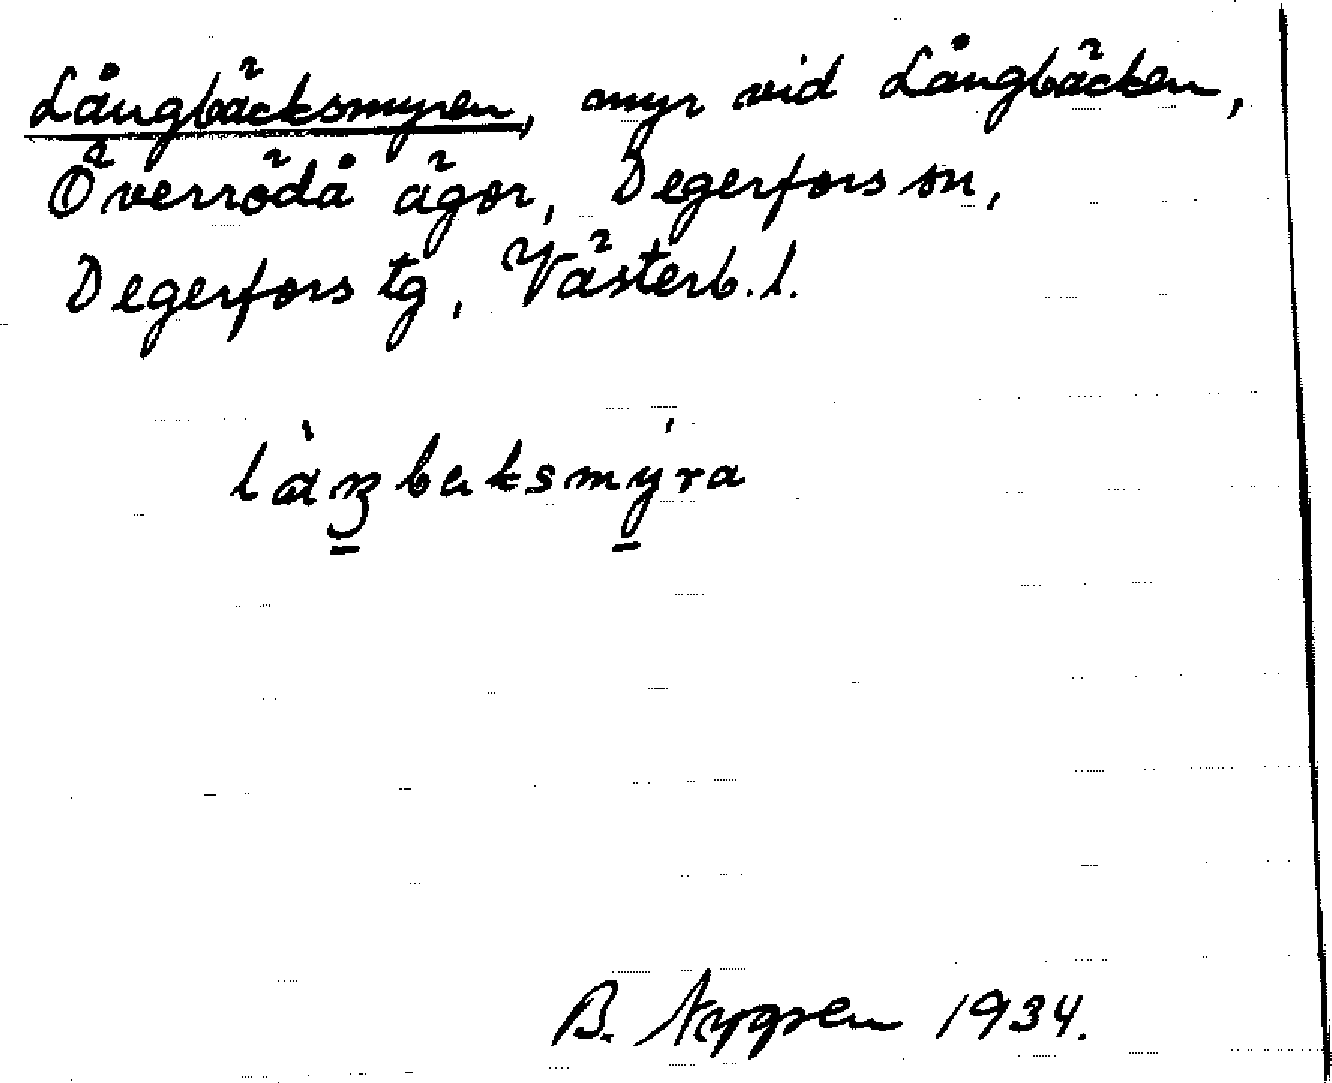 Långbäcksmyren, myr vid Långbäcken,
Överrödå ägor, Degerfors sn,
Degerfors tg, Västerb.l.
làŋbeksmýra
B. Nygren 1934.